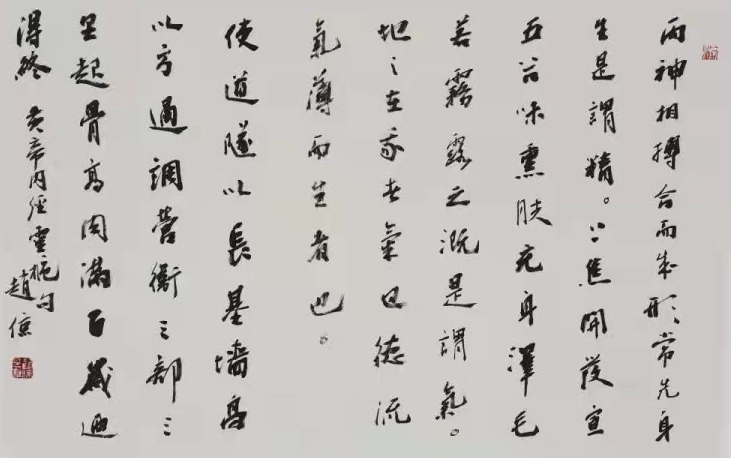 兩神相搏合而成形々常先身
生是謂精。上焦開發宣
五谷味熏肤充身澤毛
若霧露之溉是謂氣。
地之在我者氣也德流
氣薄而生者也。
使道隧以長基墻高
以方通調營衛三部三
里起骨高肉滿百歲迺
得終 黃帝內經靈樞句
趙